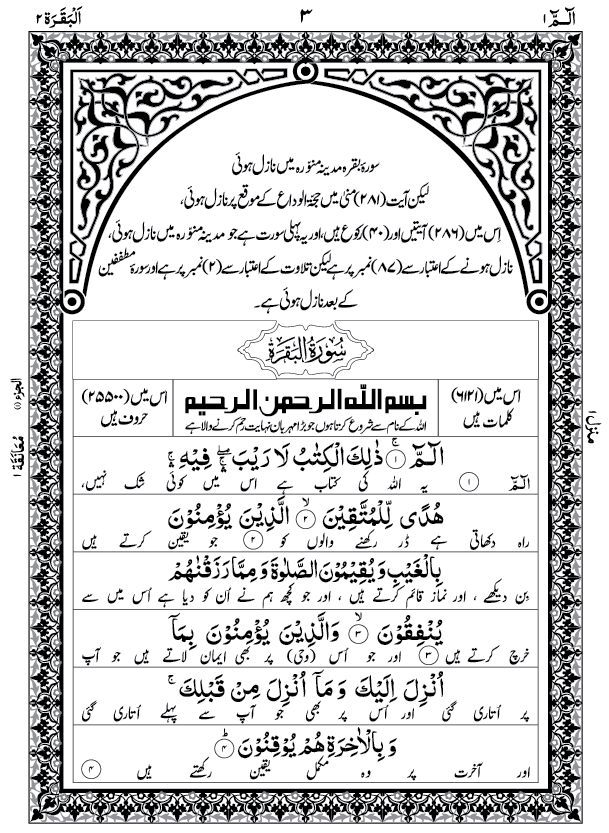 الٓـمّٓ ١
٣
اَلْبَقَرَة ٢
سورۂ بقرہ مدینہ منوّرہ میں نازل ہوئی
لیکن آیت (۲۸۱) منیٰ میں حجۃ الوداع کے موقع پر نازل ہوئی،
اِس میں (۲۸۶) آیتیں اور (۴۰) رکوع ہیں، اور یہ پہلی سورت ہے جو مدینہ منوّرہ میں نازل ہوئی،
نازل ہونے کے اعتبار سے (۸۷) نمبر پر ہے لیکن تلاوت کے اعتبار سے (۲) نمبر پر ہے اور سورۂ مطففین
کے بعد نازل ہوئی ہے۔
سُوْرَةُ الْبَقَرَةِ
اس میں (۶۱۲۱)
کلمات ہیں
بسم الله الرحمن الرحيم
اللہ کے نام سے شروع کرتا ہوں جو بڑا مہربان نہایت رحم کرنے والا ہے
اس میں (۲۵۵۰۰)
حروف ہیں
الٓـمّٓ ۚ‏ ١ ذٰلِكَ الْكِتٰبُ لَا رَيْبَ ۛۖ فِيْهِ ۛۚ
الٓمّٓ ۱ یہ اللہ کی کتاب ہے اس میں کوئی شک نہیں،
هُدًى لِّلْمُتَّقِيْنَ ۙ‏ ٢ الَّذِيْنَ يُؤْمِنُوْنَ
راہ دکھاتی ہے ڈر رکھنے والوں کو ۲ جو یقین کرتے ہیں
بِالْغَيْبِ وَيُقِيْمُوْنَ الصَّلٰوةَ وَمِمَّا رَزَقْنٰهُمْ
بِن دیکھے، اور نماز قائم کرتے ہیں، اور جو کچھ ہم نے اُن کو دیا ہے اُس میں سے
يُنْفِقُوْنَ ۙ‏ ٣ وَالَّذِيْنَ يُؤْمِنُوْنَ بِمَآ
خرچ کرتے ہیں ۳ اور جو اُس (وحی) پر بھی ایمان لاتے ہیں جو آپ
اُنْزِلَ اِلَيْكَ وَمَآ اُنْزِلَ مِنْ قَبْلِكَ ۚ
پر اُتاری گئی اور اُس پر بھی جو آپ سے پہلے اُتاری گئی
وَبِالْاٰخِرَةِ هُمْ يُوْقِنُوْنَ ؕ‏ ٤
اور آخرت پر وہ مکمل یقین رکھتے ہیں ۴
منزل ١
الجزء ١
مُعَانَقَة ١